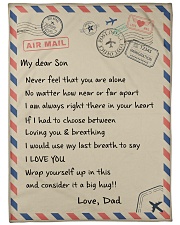 AIR MAIL
My dear Son
Never feel that you are alone
No matter how near or far apart
I am always right there in your heart
If I had to choose between
Loving you & breathing
I would use my last breath to say
I LOVE YOU
Wrap yourself up in this
and consider it a big hug!!
Love, Dad